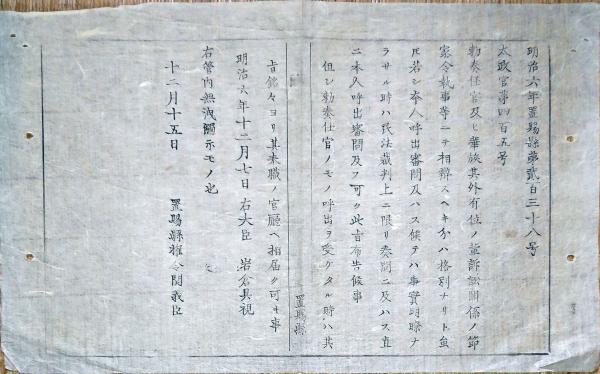 明治六年置賜縣第貳百三十八号
太政官第四百五号
勅奏任官及ヒ華族其外有位ノ輩訴訟関係ノ節
家令執事等ニテ相辨スヘキ分ハ格別ナリト虽
圧若シ本人呼出審問及ハス候テハ事實明瞭ナ
ラサル時ハ民法裁判上ニ限リ奏聞ニ及ハス直
ニ本人呼出審問及フ可ク此旨布告候事
但シ勅奏任官ノモノ呼出ヲ受ケタル時ハ其
旨銘々ヨリ其奉職ノ官廳ヘ相届ク可キ事
明治六年十二月七日右大臣 岩倉具視
右管内無洩觸示モノ也
十二月十五日 置賜縣権令関義臣
置賜縣